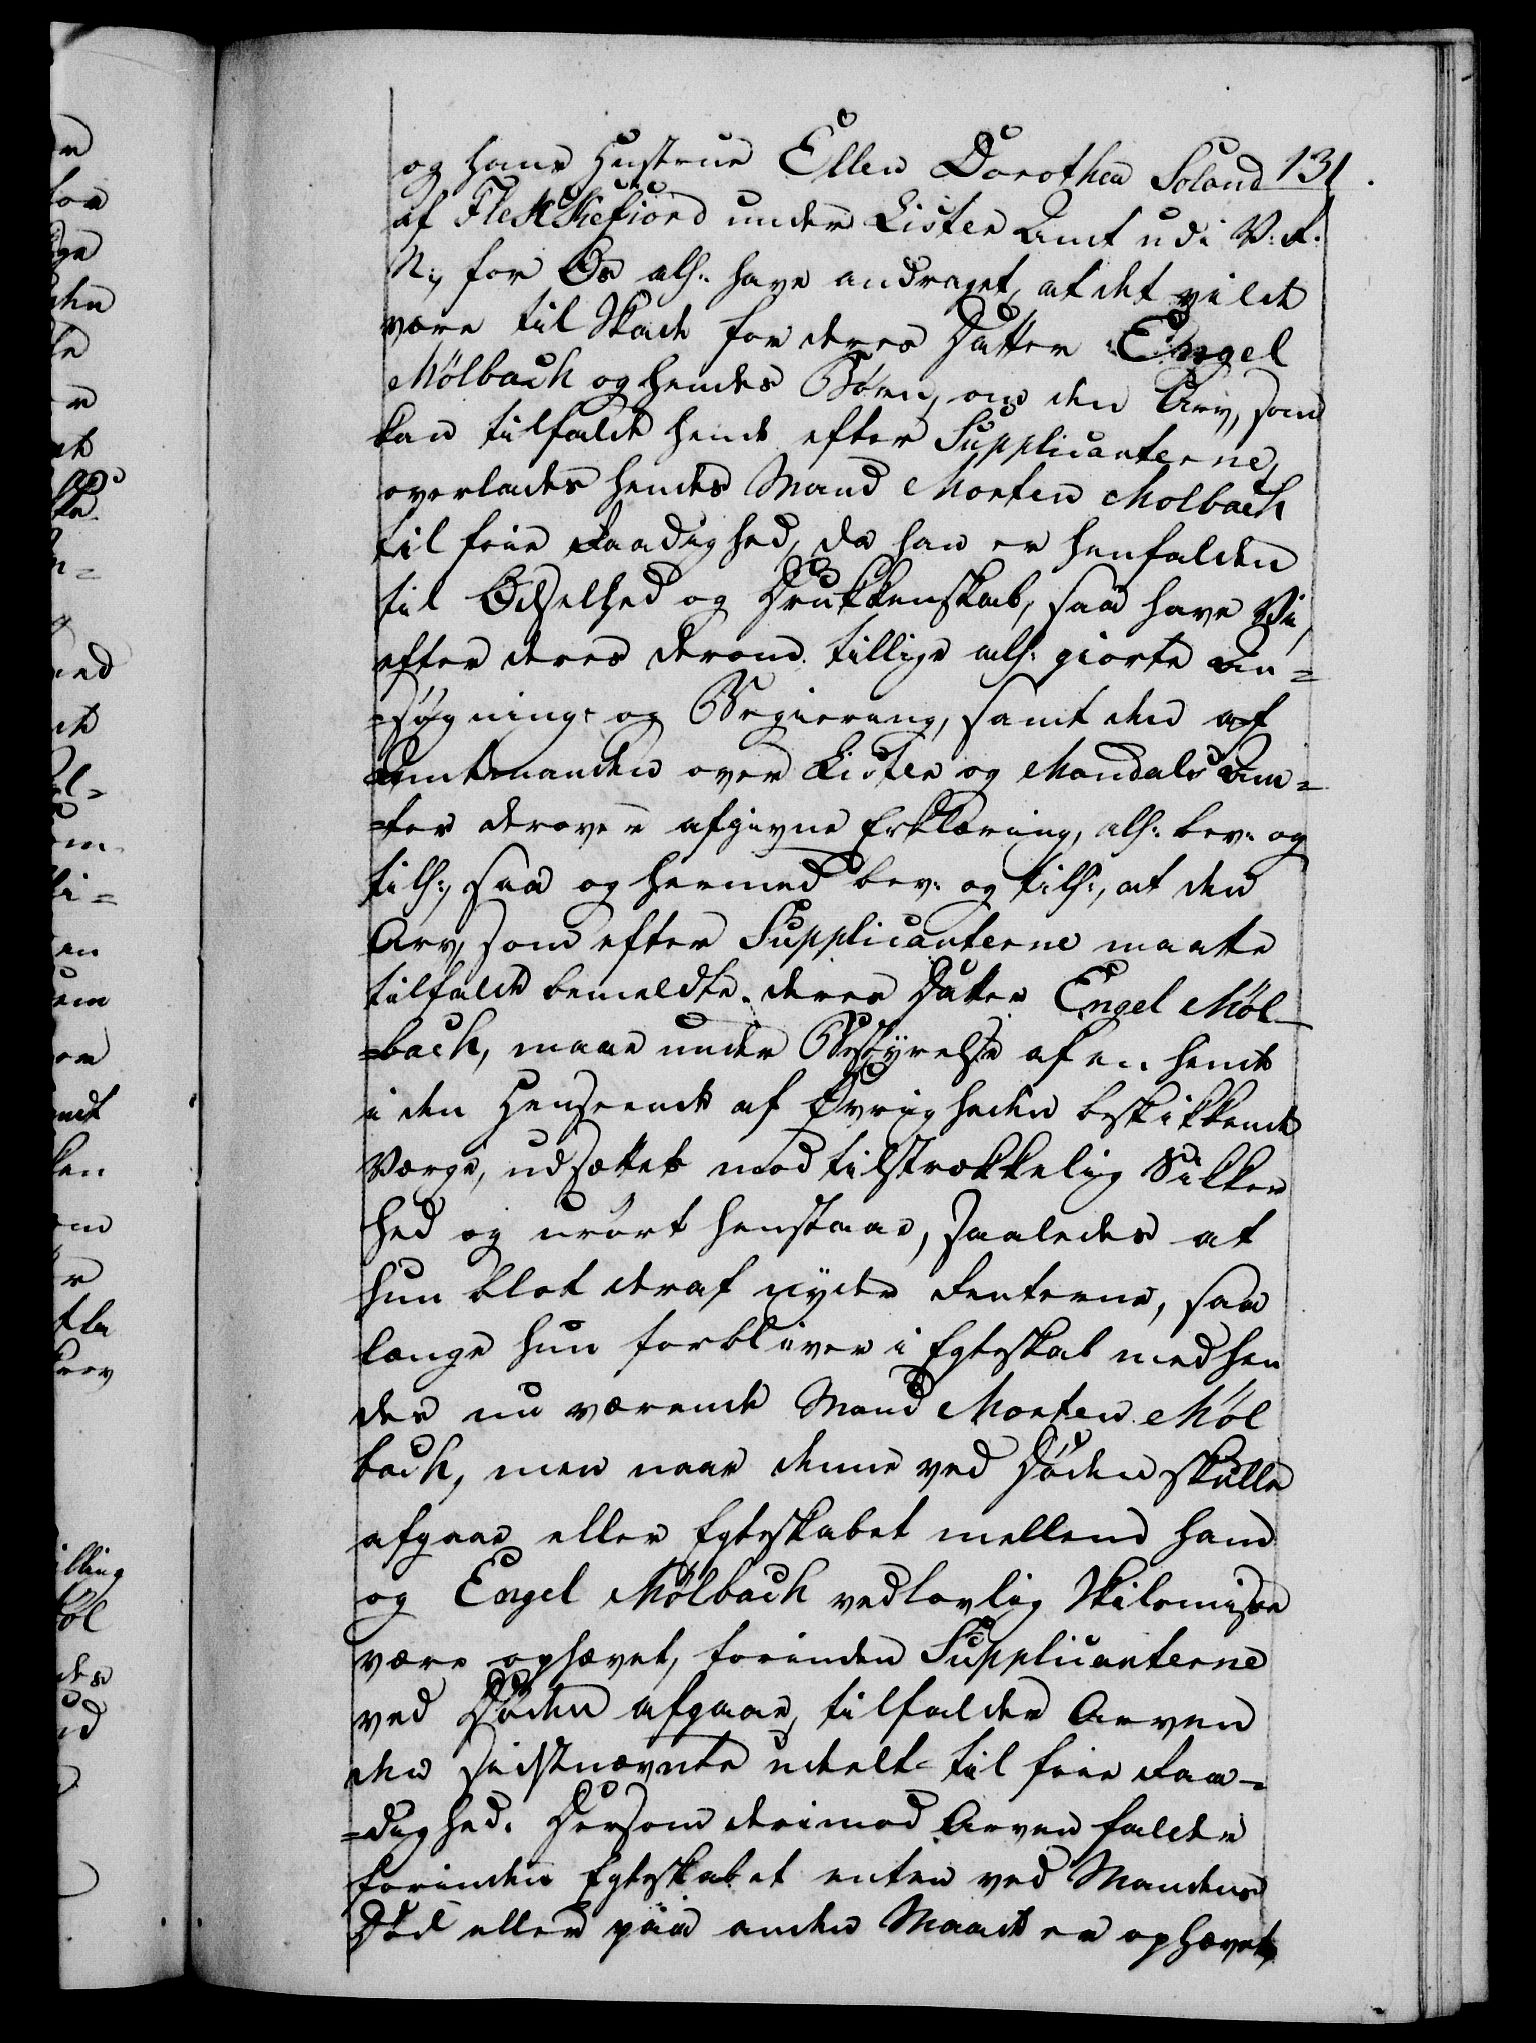 og hans Hustrue Ellen Dorothea Soland 131.
af Flekkefiord under Lister Amt udi V: R:
N:, for Os alh: have andraget, at det vilde
være til Skade for deres Datter Engel
Mölbach og hendes Börn, om den Arv, som
kan tilfalde hende efter Supplicanterne,
overlades hendes Mand Morten Molbach
til frie Raadighed, da han er henfalden
til Ödselhed og Drukkenskab, saa have Vi,
efter deres derom tillige alh: giorte An=
=søgning og Begiering, samt den af
Amtmanden over Lister og Mandals Am=
=ter derover afgivne Erklæring, alh: bev: og
tilh:, saa og hermed bev: og tilh:, at den
Arv, som efter Supplicanterne maatte
tilfalde bemeldte deres Datter Engel Möl=
=bach, maae under Bestyrelse af en hende
i den Henseende af Øvrigheden beskikkende
Værge, udsættes mod tilstrækkelig Sikker
hed og urört henstaae, saaledes at
hun blot deraf nyder Renterne, saa
længe hun forbliver i Egteskab med hen
des nu værende Mand Morten Möl
bach, men naar denne ved Döden skulle
afgaae eller Egteskabet mellem ham
og Engel Mölbach ved lovlig Skilsmisse
være ophævet, forinden Supplicanterne
ved Döden afgaae, tilfalder Arven
den sidstnævnte udelt til frie Raa=
=dighed. Dersom derimod Arven falder
forinden Egteskabet enten ved Mandens
Död eller paa anden Maade er ophævet,